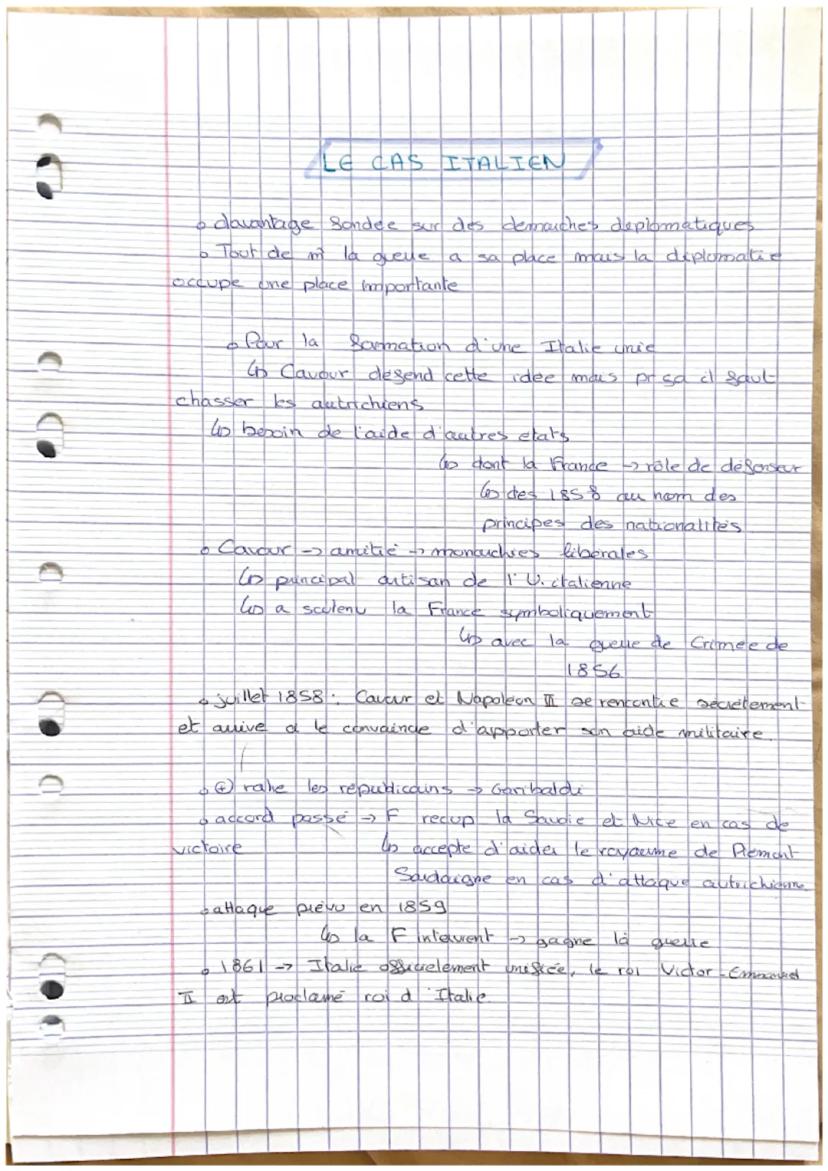 LE CAS ITALIEN
o davantage fondée sur des demarches diplomatiques
o Tout de m̂ la guerre a sa place mais la diplomatie
occupe une place importante
o Pour la formation d'une Italie unie
↳ Cavour défend cette idée mais pr sa il faut
chasser les autrichiens
↳ besoin de l'aide d'autres etats
↳ dont la France → rôle de défenseur
↳ des 1858 au nom des
principes des nationalités
o Cavour → amitié → monarchies libérales
↳ principal artisan de l'U. italienne
↳ a soutenu la France symboliquement
↳ avec la guerre de Crimée de
1856
o juillet 1858 : Cavour et Napoléon III se rencontre secrètement
et arrive a le convaincre d'apporter son aide militaire.
o ⊕ ralie les républicains → Garibaldi
o accord passé → F recup la Savoie et Nice en cas de
victoire ↳ accepte d'aider le royaume de Piemont
Sardaigne en cas d'attaque autrichienne
o attaque prévu en 1859
↳ la F intervient → gagne la guerre
o 1861 → Italie officielement unifiée, le roi Victor-Emmanuel
II est proclamé roi d'Italie